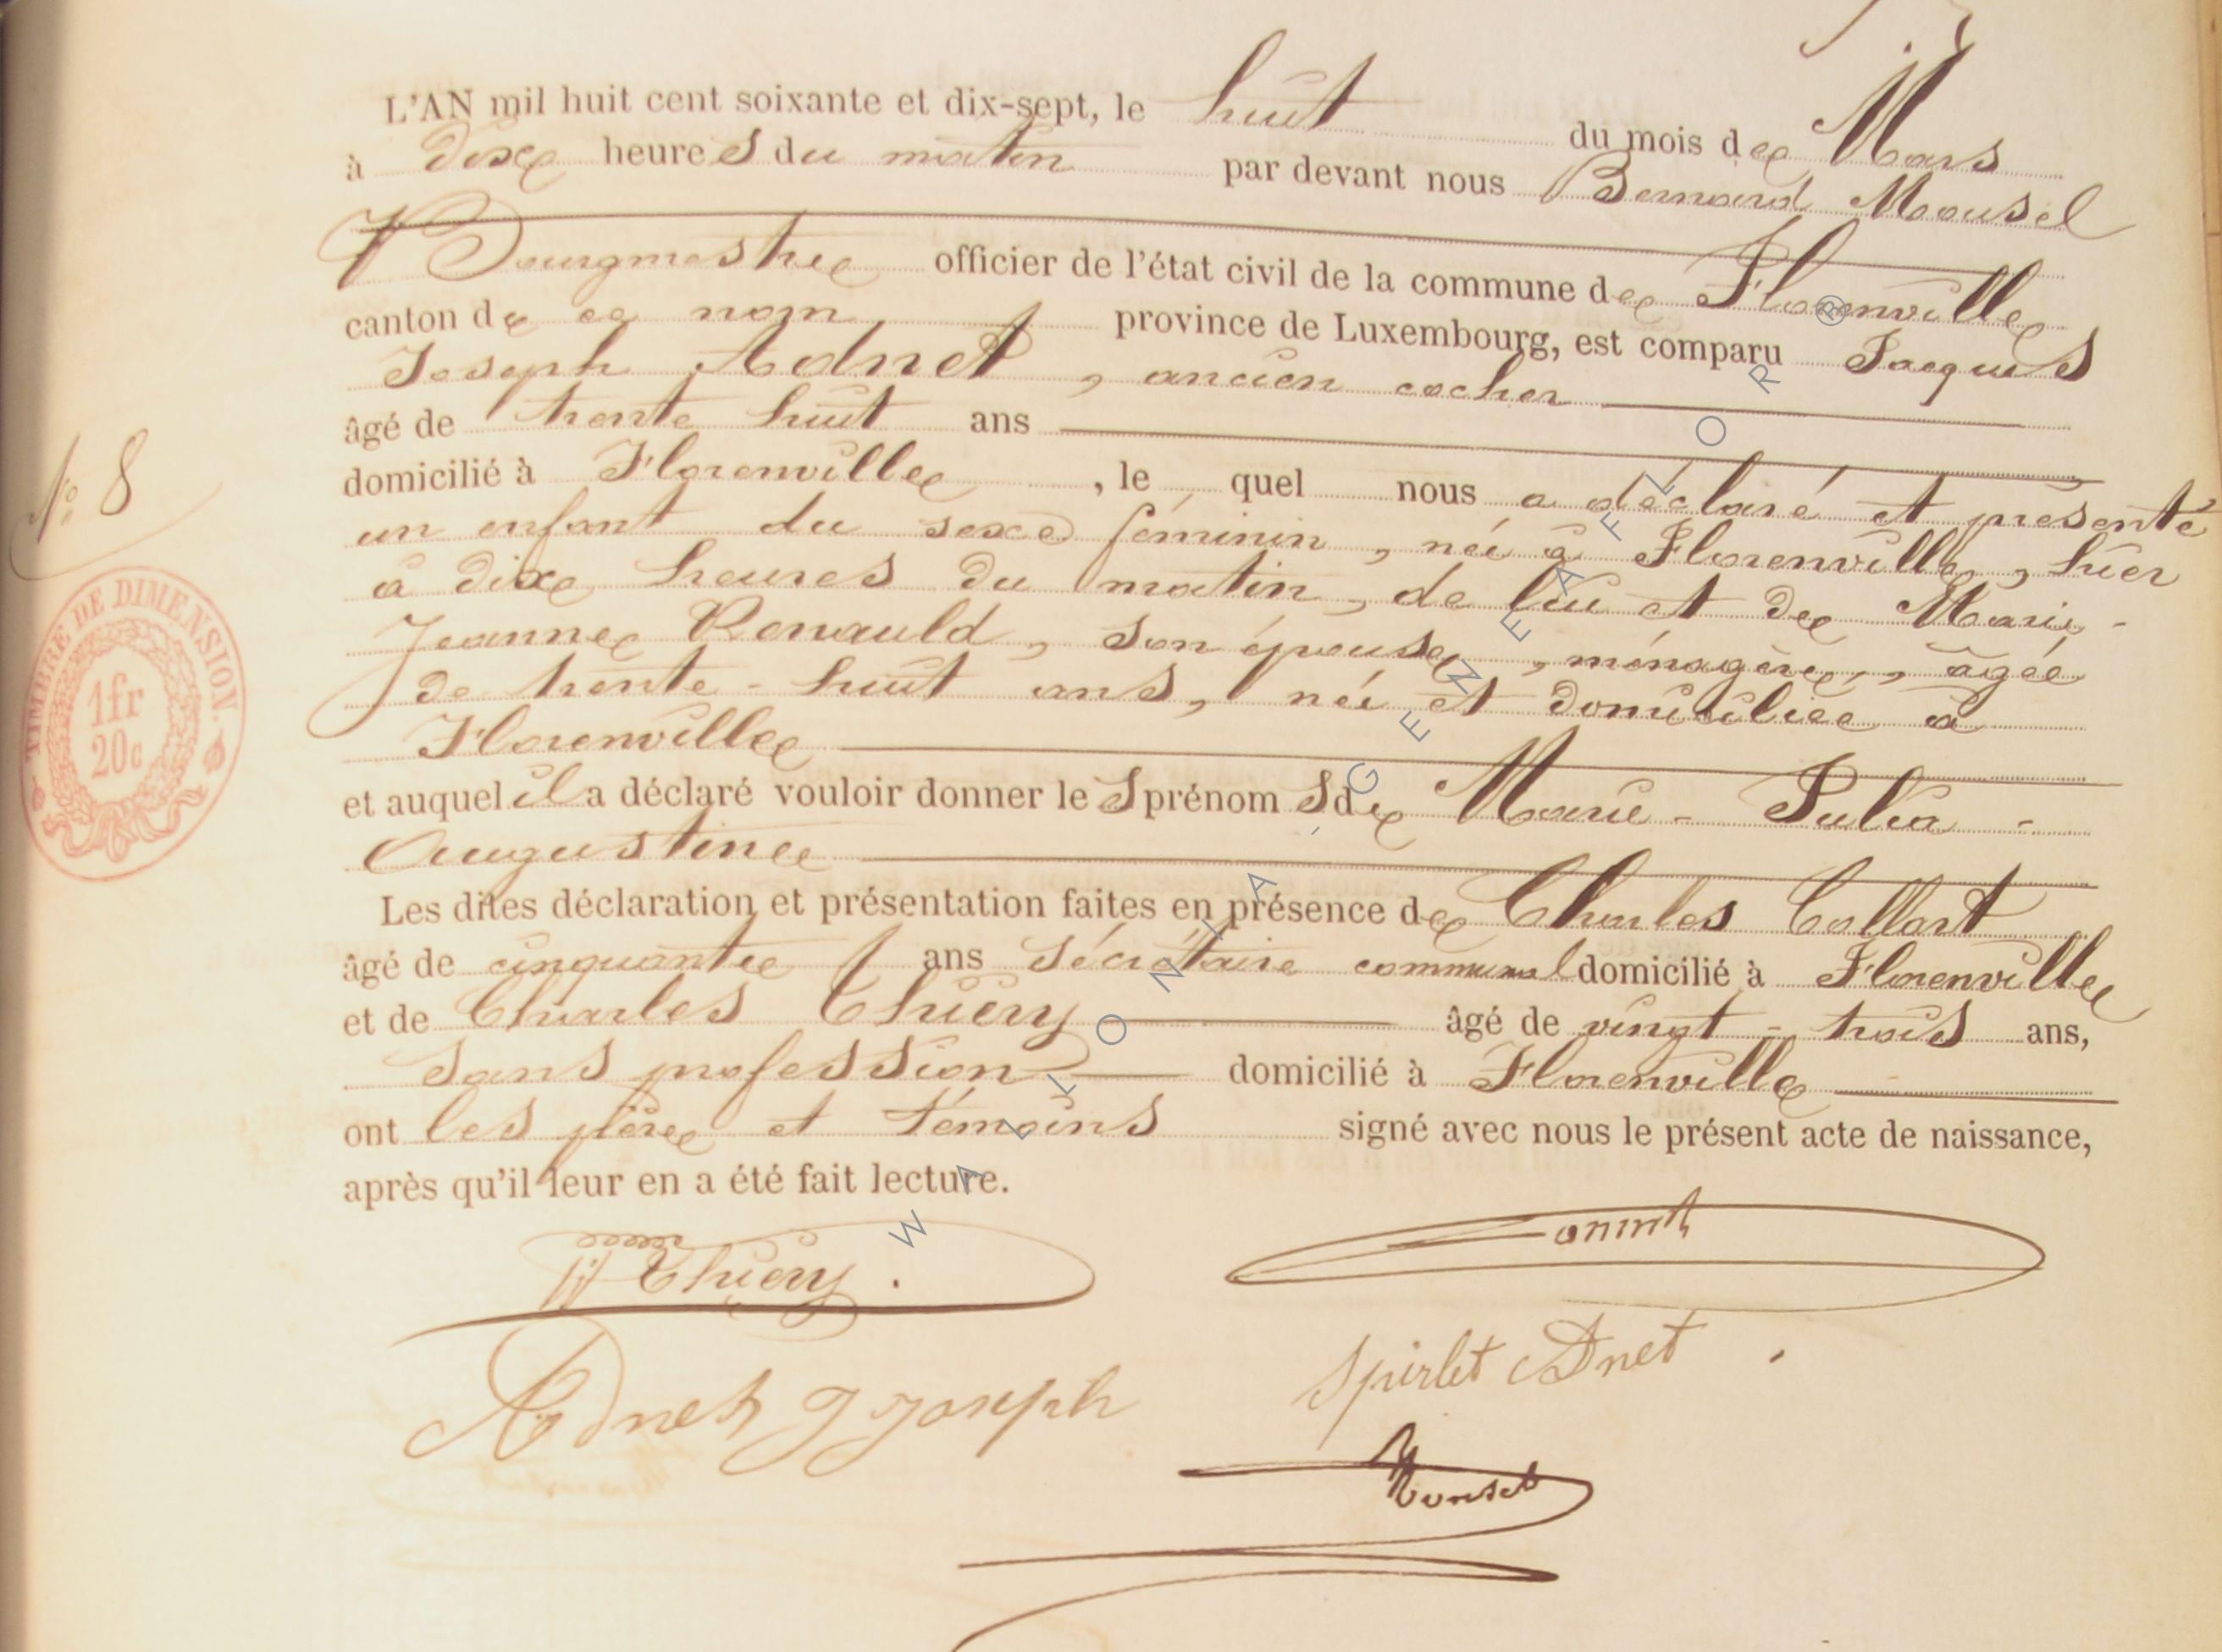 L'AN mil huit cent soixante et dix-sept, le huit du mois de Mars
à dix heures du matin par devant nous Bernard Mousel
Bourgmestre officier de l'état civil de la commune de Florenville
canton de ce nom, province de Luxembourg, est comparu Jacques
Joseph Adnet, ancien cocher
âgé de trente huit ans
domicilié à Florenville, le quel nous a déclaré et présenté
N° 8
un enfant du sexe féminin, née à Florenville, hier
à dix heures du matin, de lui et de Marie-
Jeanne Renauld, son épouse, ménagère, âgée
de trente-huit ans, née et domiciliée à
Florenville
et auquel il a déclaré vouloir donner les prénoms de Marie-Julia-
Augustine
TIMBRE DE DIMENSION.
1fr
20c
Les dites déclaration et présentation faites en présence de Charles Collart
âgé de cinquante ans Sécrétaire communal domicilié à Florenville
et de Charles Thiery âgé de vingt-trois ans,
sans profession domicilié à Florenville
ont les père et témoins signé avec nous le présent acte de naissance,
après qu'il leur en a été fait lecture.
Thiery.
Adnet J Joseph
Spirlet Adnet.
Mousel
WALLONIA - GENEAFLOR ®